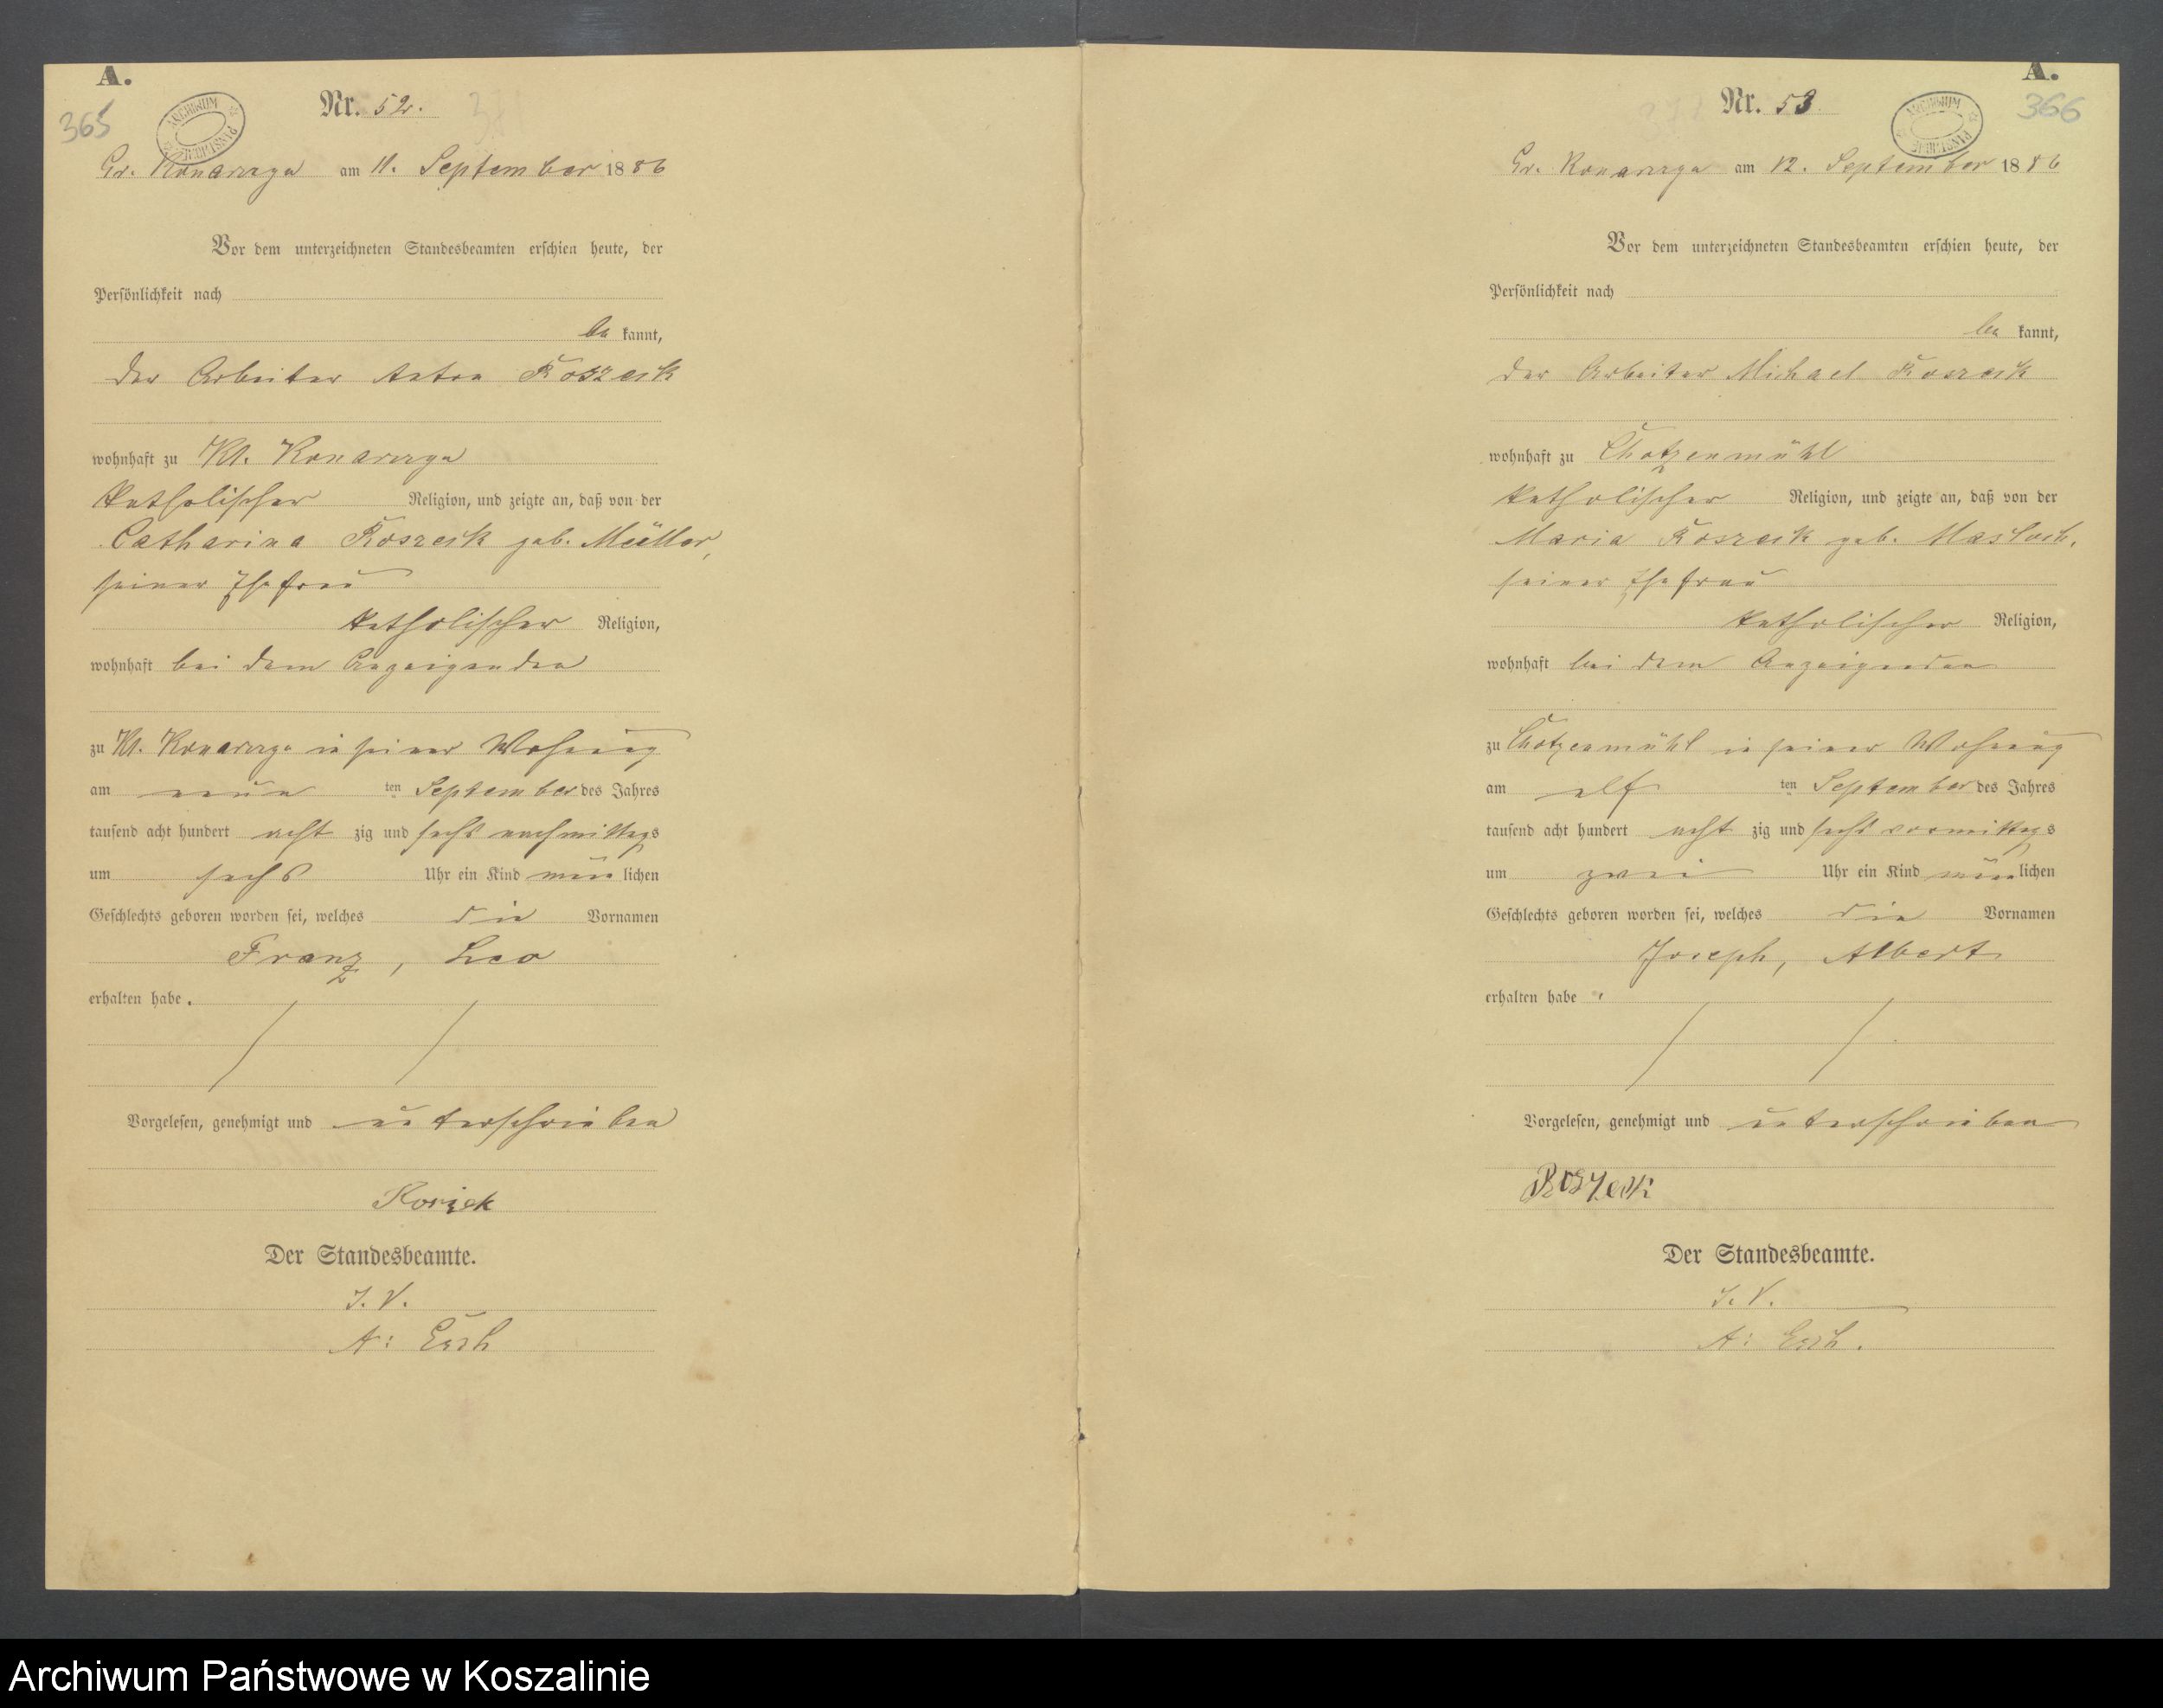 A.
365
ARCHIWUM PAŃSTWOWE
Nr. 52.
Gr. Konarczyn am 11. September 1886
Vor dem unterzeichneten Standesbeamten erschien heute, der
Persönlichkeit nach
be kannt,
der Arbeiter Anton Koszeik
wohnhaft zu Kl. Konarczyn
katholischer Religion, und zeigte an, daß von der
Catharina Koszeik geb. Müller,
seiner Ehefrau
katholischer Religion,
wohnhaft bei dem Anzeigenden
zu Kl. Konarczyn in seiner Wohnung
am neun ten September des Jahres
tausend acht hundert acht zig und sechs nachmittags
um sechs Uhr ein Kind männlichen
Geschlechts geboren worden sei, welches die Vornamen
Franz, Leo
erhalten habe.
Vorgelesen, genehmigt und unterschrieben
Der Standesbeamte.
J. V.
A:
A.
366
ARCHIWUM PAŃSTWOWE
Nr. 53
Gr. Konarczyn am 12. September 1886
Vor dem unterzeichneten Standesbeamten erschien heute, der
Persönlichkeit nach
be kannt,
der Arbeiter Michael Koszeik
wohnhaft zu Chotzenmühl
katholischer Religion, und zeigte an, daß von der
Maria Koszeik geb.
seiner Ehefrau
katholischer Religion,
wohnhaft bei dem Anzeigenden
zu Chotzenmühl in seiner Wohnung
am elf ten September des Jahres
tausend acht hundert acht zig und sechs vormittags
um zwei Uhr ein Kind männlichen
Geschlechts geboren worden sei, welches die Vornamen
Joseph, Albert
erhalten habe.
Vorgelesen, genehmigt und unterschrieben
Der Standesbeamte.
J. V.
A:
Archiwum Państwowe w Koszalinie